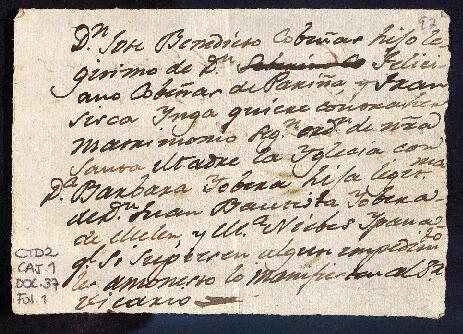 97
Dn Jose Benedicto Cobeñas hijo le
gitimo de Dn Felici
ano Cobeñas de Pariña y Fran
sisca Ynga quiere contraher
matrimonio sgn ordn de nra
Santa Madre la Yglesia con
Da Barbara Tobera hija legitma
de Dn Juan Bautista Tobera
de y Ma Niebes
q si supiesen algun impedimto
les amonesto lo manifiesten al Sr
Vicario
CTD2
CAJ.1
DOC.37
FOI.1